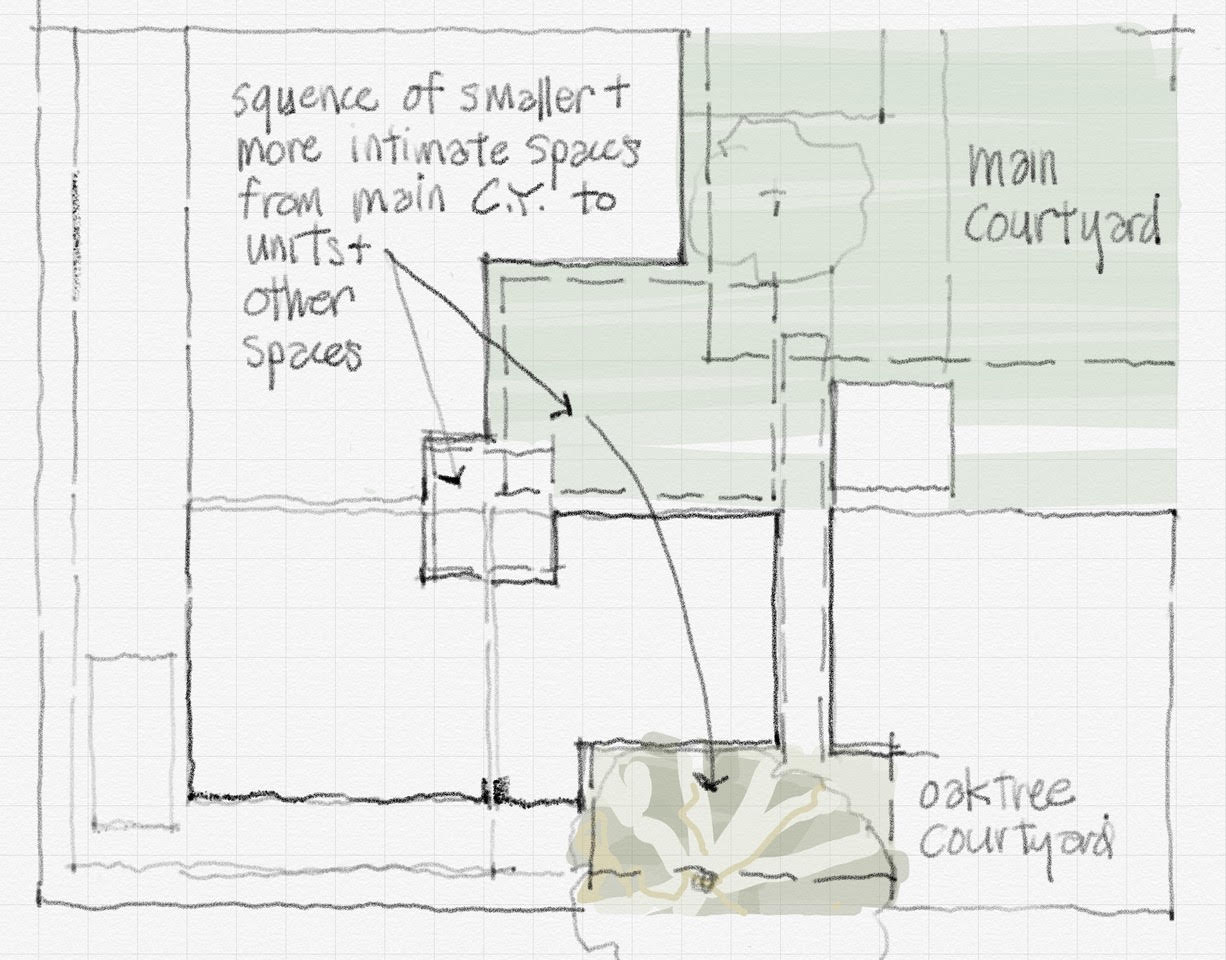 squence of smaller +
more intimate spaces
from main C.Y. to
units +
other
spaces
main
courtyard
oak tree
courtyard